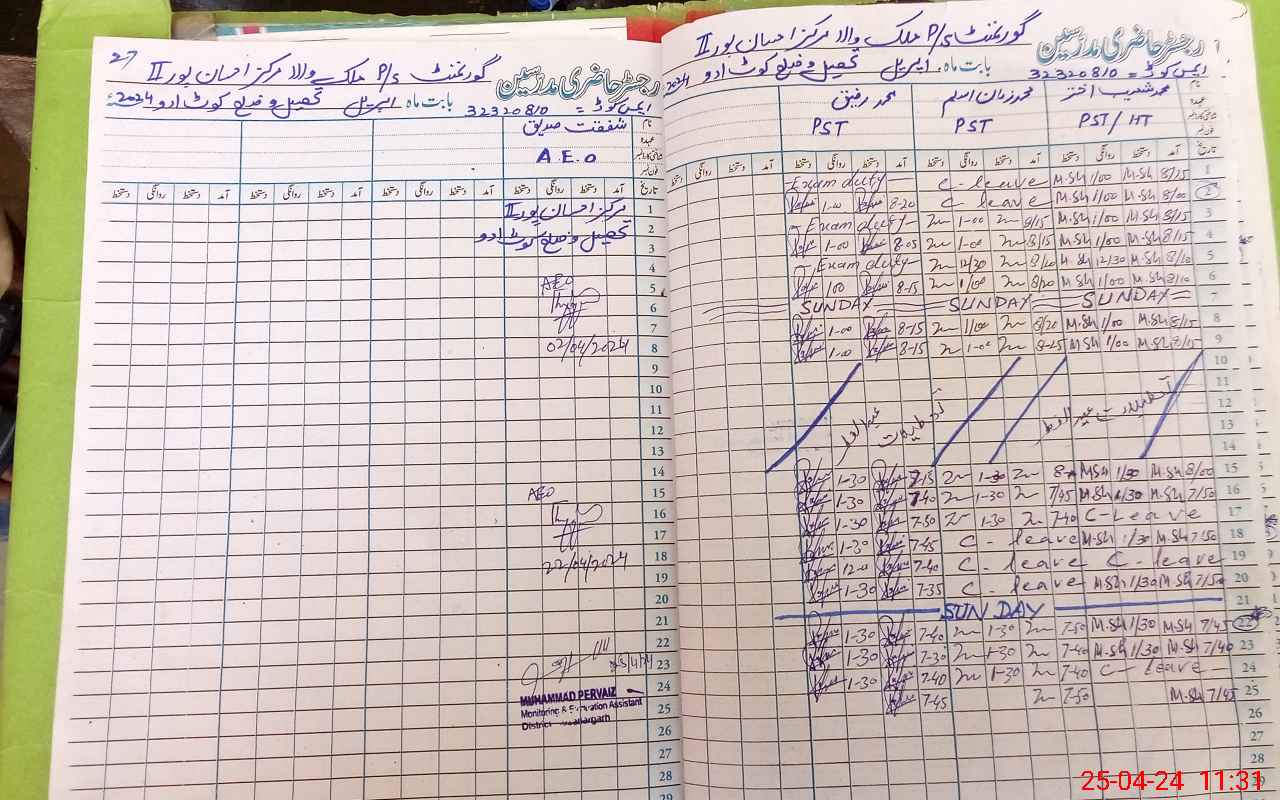 27
رجسٹر حاضری مدرسین
گورنمنٹ P/S ملک والا مرکز احسان پور II
ایمس کوڈ = 32320810 بابت ماہ اپریل تحصیل و ضلع کوٹ ادو 2024
نام شفقت صدیق
عہدہ A.E.O
تاریخ آمد دستخط روانگی دستخط آمد دستخط روانگی دستخط آمد دستخط روانگی دستخط آمد دستخط روانگی دستخط
1 مرکز احسان پور II
2 تحصیل و ضلع کوٹ ادو
3
4
5 AEO
6
7
8 02/04/2024
9
10
11
12
13
14
15 AEO
16
17
18 22/04/2024
19
20
21
22
23
24 MUHAMMAD PERVAIZ
25 Monitoring & Evaluation Assistant
District
26
27
28
29
رجسٹر حاضری مدرسین
گورنمنٹ P/S ملک والا مرکز احسان پور II
ایمس کوڈ = 32320810 بابت ماہ اپریل تحصیل و ضلع کوٹ ادو 2024
نام محمد شعیب اختر محمد زمان اسلم محمد رفیق
عہدہ PST/HT PST PST
تاریخ آمد دستخط روانگی دستخط آمد دستخط روانگی دستخط آمد دستخط روانگی دستخط آمد دستخط روانگی دستخط
Exam duty C-leave M.Sh 1/00 M.Sh 8/15 1
1-00 8-20 C leave M.Sh 1/00 M.Sh 8/00 2
Exam duty 1-00 8/15 M.Sh 1/00 M.Sh 8/15 3
1-00 8-05 1-00 8/15 M.Sh 1/00 M.Sh 8/15 4
Exam duty 12/30 8/10 M.Sh 12/30 M.Sh 8/10 5
100 8-15 1/00 8/20 M.Sh 1/00 M.Sh 8/10 6
SUNDAY SUNDAY SUNDAY 7
1-00 8-15 1/00 8/20 M.Sh 1/00 M.Sh 8/15 8
1-00 8-15 1-00 8-15 M.Sh 1/00 M.Sh 8/15 9
10
11
تعطیلات عید الفطر تعطیلات عید الفطر 12
13
14
1-30 7-15 1-30 M.Sh 1/30 M.Sh 8/00 15
1-30 7-40 1-30 7/45 M.Sh 1/30 M.Sh 7/50 16
1-30 7-50 1-30 7-40 C-Leave 17
1-30 7-45 C-leave M.Sh 1/30 M.Sh 7/50 18
12-00 7-40 C-leave C-leave 19
1-30 7-35 C-leave M.Sh 1/30 M.Sh 7/50 20
SUNDAY 21
1-30 7-40 1-30 7-50 M.Sh 1/30 M.Sh 7/45 22
1-30 7-30 1-30 7-40 M.Sh 1/30 M.Sh 7/40 23
1-30 7-40 1-30 7-40 C-leave 24
7-45 7-50 M.Sh 7/45 25
26
27
28
29
25-04-24 11:31